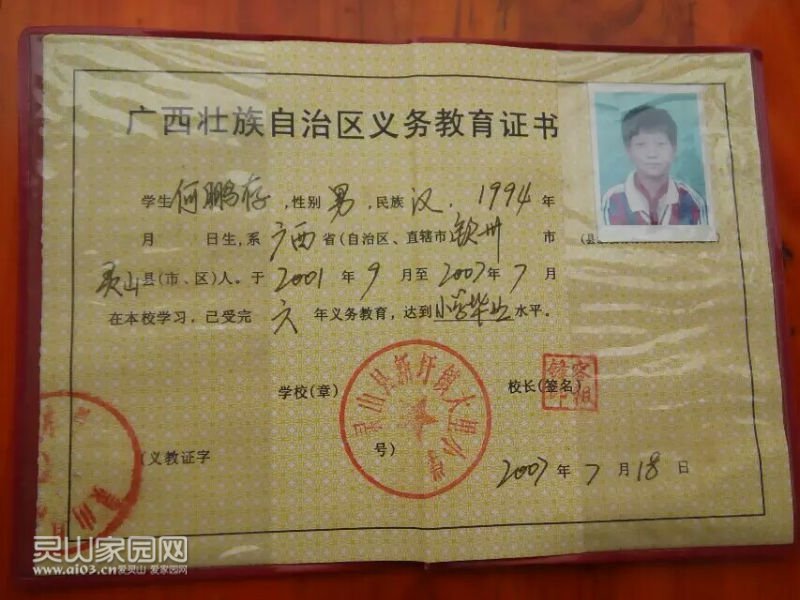 广西壮族自治区义务教育证书
学生何鹏存,性别男,民族汉,1994年
月 日生,系广西省(自治区、直辖市)钦州市
灵山县(市、区)人。于2001年9月至2007年7月
在本校学习,已受完六年义务教育,达到小学毕业水平。
学校(章) 校长(签名)
灵山县新圩镇
(义教证字 号)
灵山县
2007年7月18日
灵山家园网
www.ai03.cn 爱灵山 爱家园网